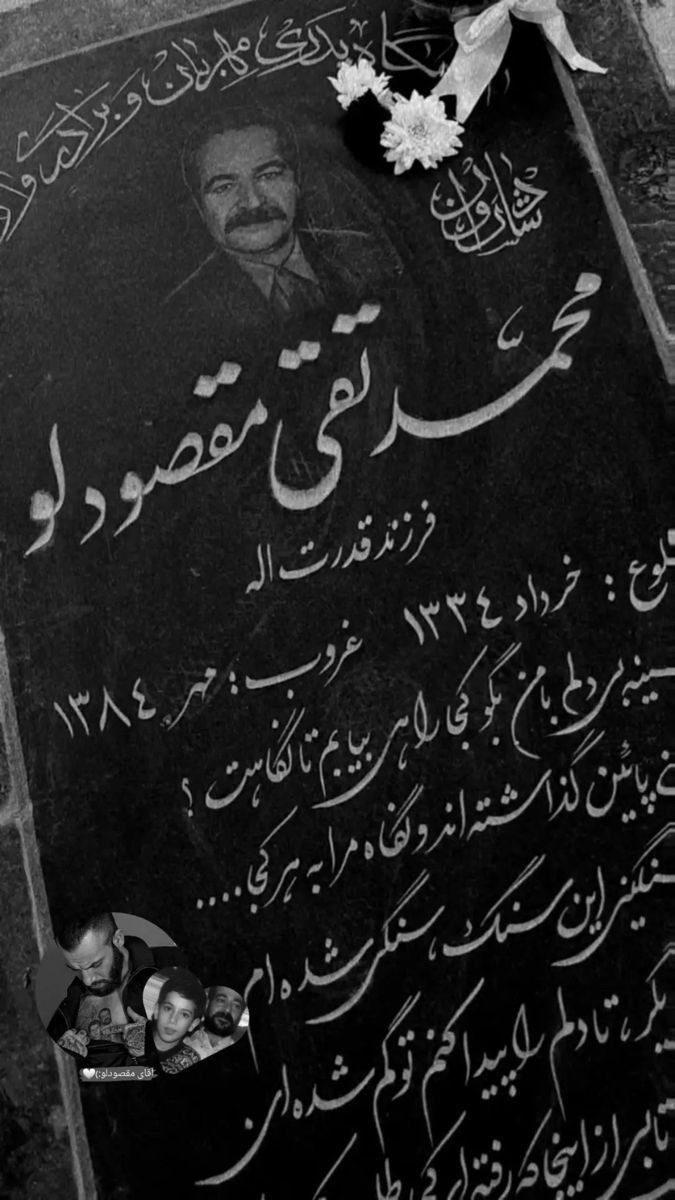 پدری مهربان و برادری
شادروان
محمد تقی مقصودلو
فرزند قدرت اله
طلوع : خرداد ۱۳۳٤ غروب : مهر ۱۳۸٤
دلم بامن بگو کجا راهی بیابم تا نگاهت ؟
پائین گذاشته اند و نگاه مرا به هر کجا....
سنگینی این سنگ، سنگی شده ام
تا دلم را پیدا کنم تو گم شده ای
از اینجا که رفته ای
آقای مقصودلو:)🤍